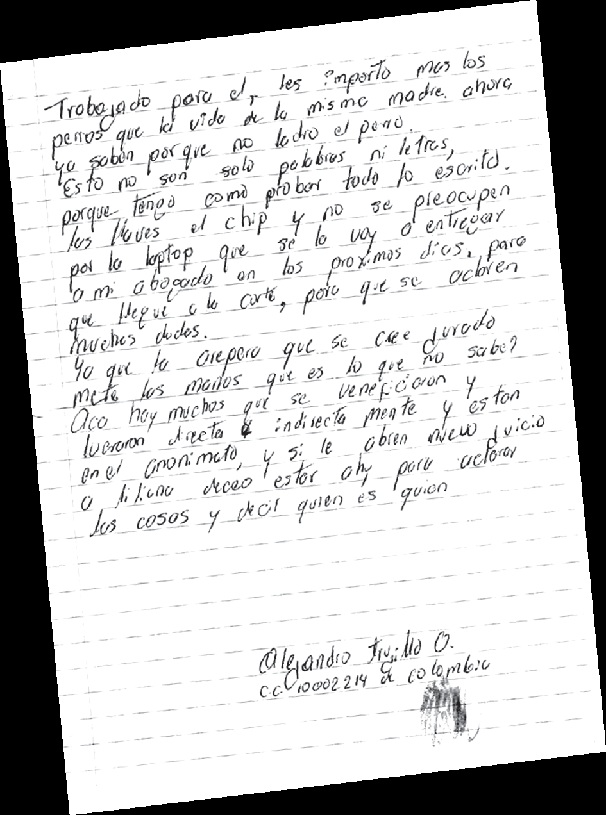 Trabajado para el, les importo mas los
perros que la vida de la misma madre. ahora
ya saben porque no ladro el perro.
Esto no son solo palabras ni letras,
porque tengo como probar todo lo escrito.
las llaves el chip y no se preocupen
por la laptop que se la voy a entregar
a mi abogado en los proximos dias, para
que llegue a la corte, para que se aclaren
muchas dudas.
Ya que la arepera que se cree jurado
mete las manos que es lo que no sabe?
Aca hay muchos que se veneficiaron y
lucraron directa e indirecta mente y estan
en el anonimato, y si le abren nuevo juicio
a liliana deceo estar ahy para aclarar
las cosas y decir quien es quien
Alejandro Trujillo O.
C.C 10002214 de colombia